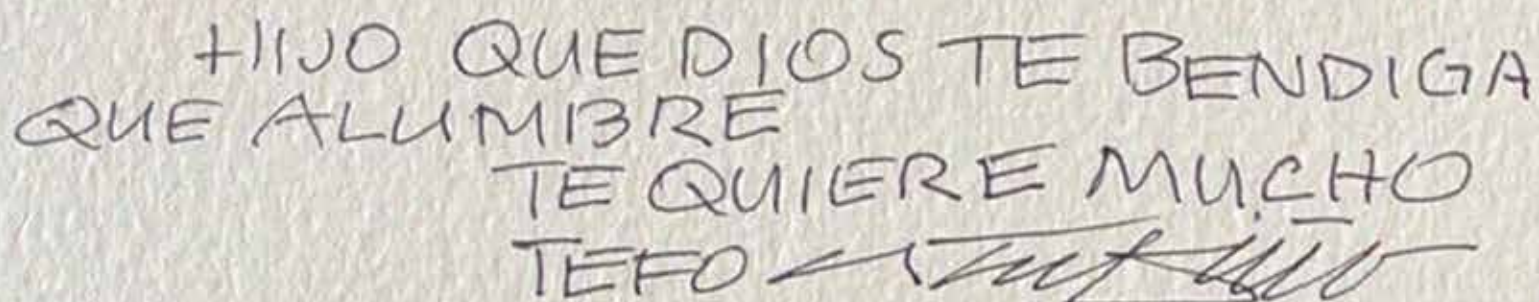 HIJO QUE DIOS TE BENDIGA
QUE ALUMBRE
TE QUIERE MUCHO
TEFO